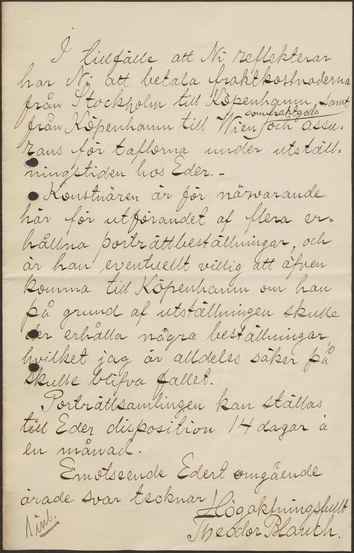 I tillfälle att Ni reflekterar
har Ni att betala fraktkostnaderna
från Stockholm till Köpenhamn, samt
från Köpenhamn till Wien som fraktgods och assu-
rans för taflorna under utställ-
ningstiden hos Eder. –
Konstnären är för närvarande
här för utförandet af flera er-
hållna porträttbeställningar, och
är han eventuellt villig att äfven
komma till Köpenhamn om han
på grund af utställningen skulle
der erhålla några beställningar,
hvilket jag är alldeles säker på
skulle blifva fallet.
Porträttsamlingen kan ställas
till Eder disposition 14 dagar à
en månad.
Emotseende Edert omgående
ärade svar tecknar
Högaktningsfullt
Theodor Blauth.